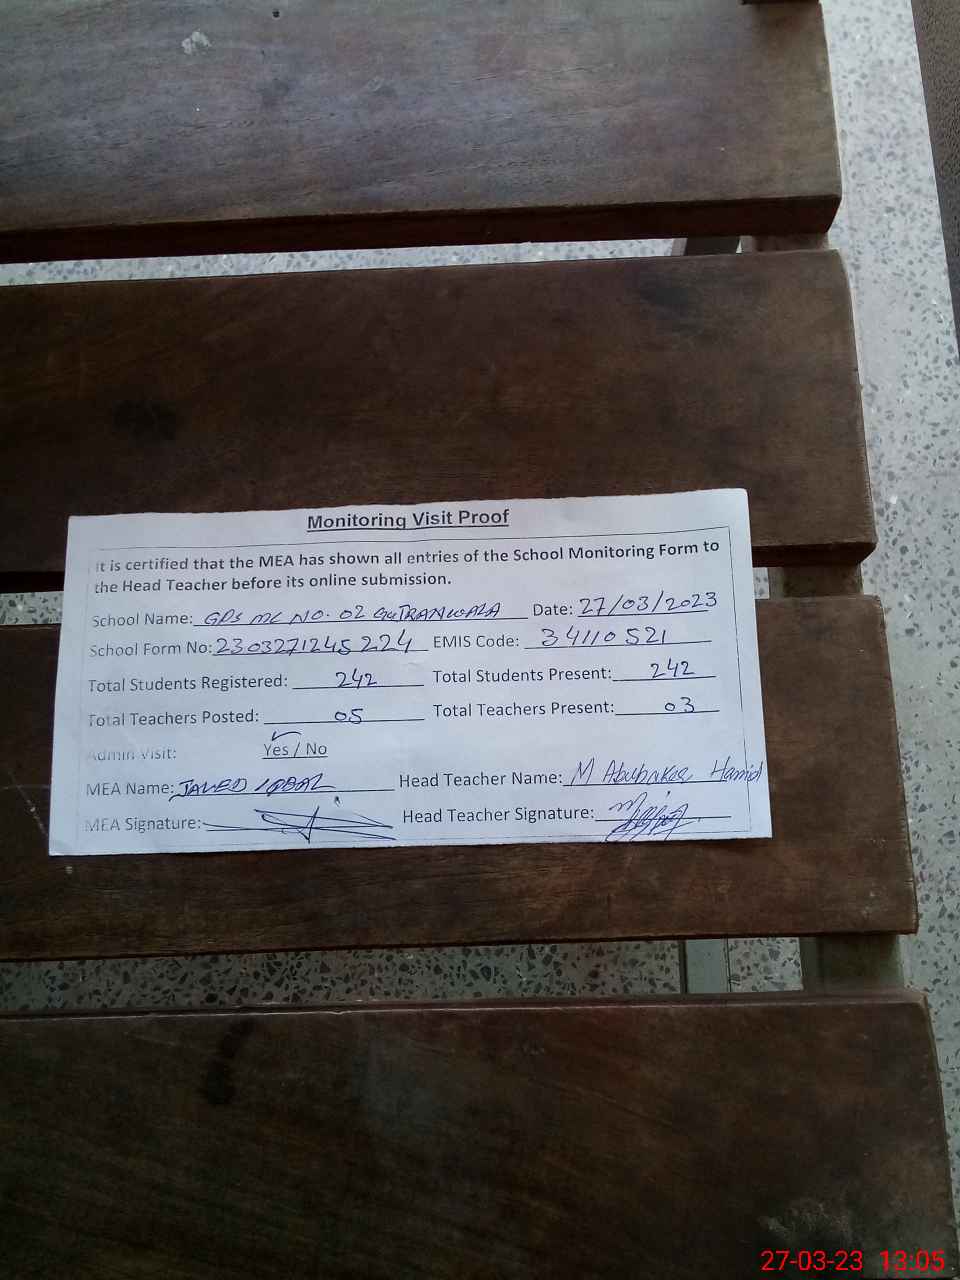 Monitoring Visit Proof
It is certified that the MEA has shown all entries of the School Monitoring Form to
the Head Teacher before its online submission.
School Name: GPS MC NO. 02 GUJRANWALA Date: 27/03/2023
School Form No: 2303271245224 EMIS Code: 34110521
Total Students Registered: 242 Total Students Present: 242
Total Teachers Posted: 05 Total Teachers Present: 03
Admin Visit: Yes / No
MEA Name: JAVED IQBAL Head Teacher Name: M Abubakar Hamid
MEA Signature: Head Teacher Signature:
27-03-23 13:05